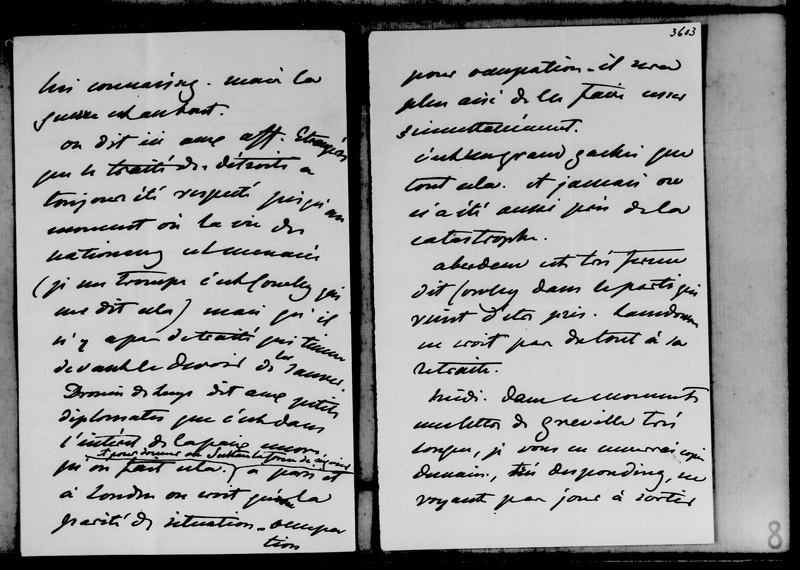 lui connaissiez. mais la
guerre est au bout.
on dit ici aux aff. Etrangères
que le traité des détroits a
toujours été respecté jusqu'au
moment où la vie des
nationaux est menacée
(je me trompe c'est Cowley qui
me dit cela) mais qu'il
n'y a pas de traité qui tienne
devant le devoir de les sauver.
Drouin de Lhuys dit aux petits
diplomates que c'est dans
l'intérêt de la paix encore
et pour donner au Sultan la force de
qu'on fait cela. à Paris et
à Londres on croit que la
parité de situation - occupa
tion
3603
pour occupation - il sera
plus aisé de les faire cesser
simultanément.
c'est un grand gachis que
tout cela. et jamais on
n'a été aussi près de la
catastrophe.
aberdeen est très ferme
dit Cowley dans le parti qui
vient d'être pris. Lansdowne
ne croit pas du tout à sa
retraite.
midi. dans ce moment
une lettre de Greville très
longue, je vous en enverrai copie
demain, très desponding, ne
voyant pas jour à sortir
8